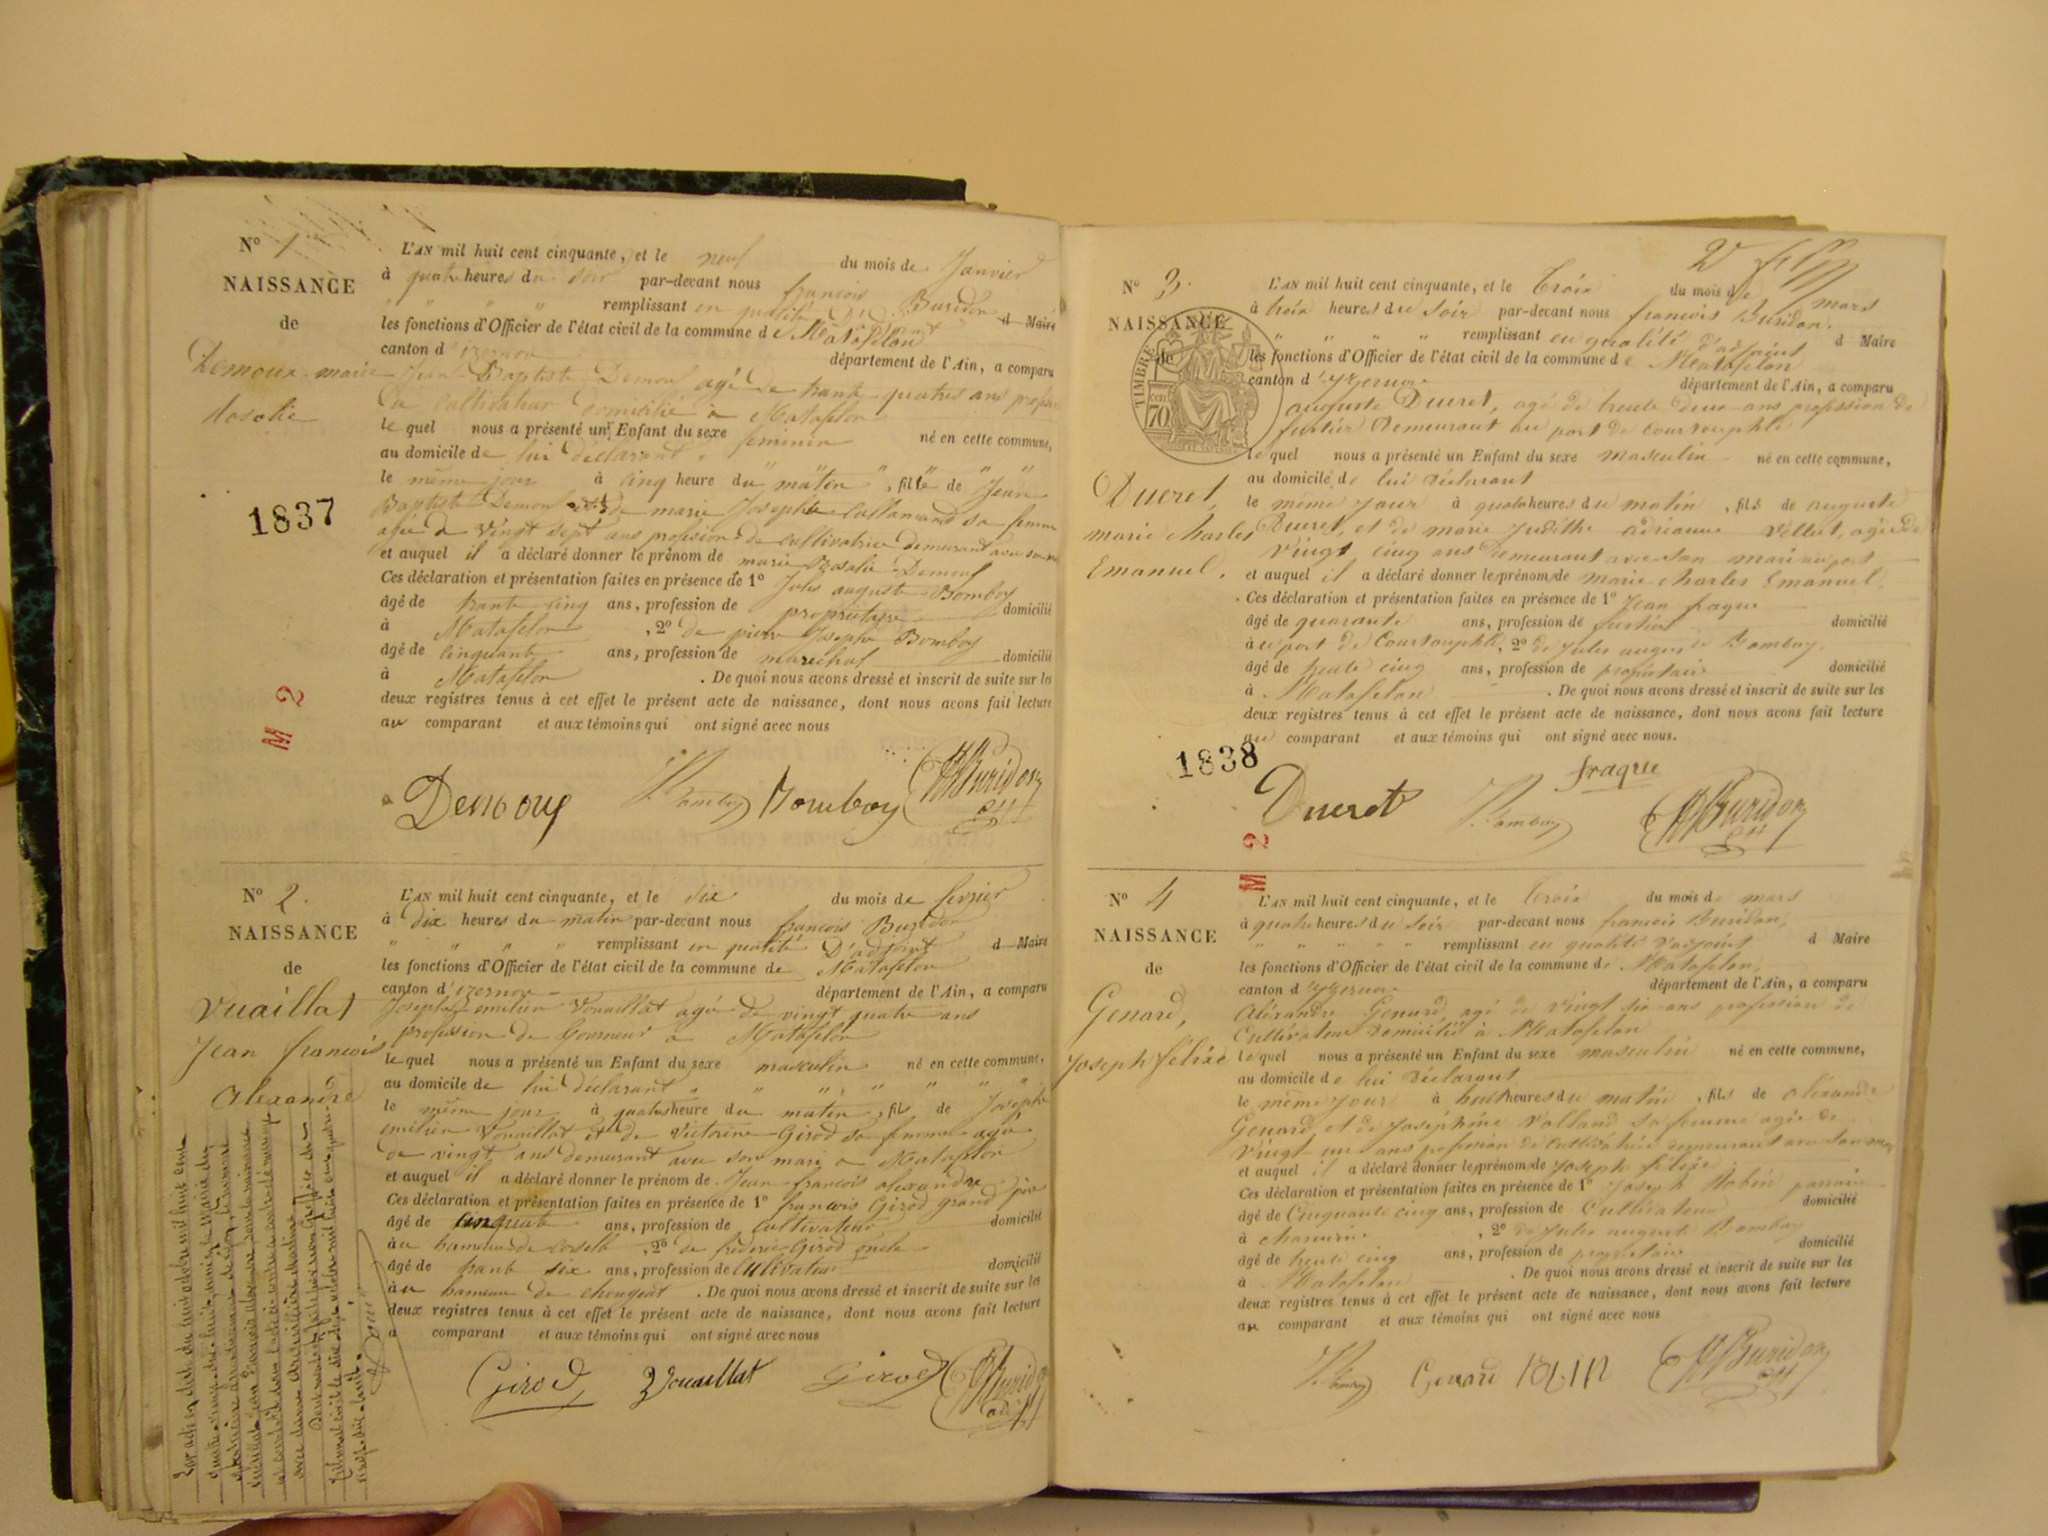 N° 1
NAISSANCE
de
Demoux marie
Rosalie
1837
M 2
L'AN mil huit cent cinquante, et le neuf du mois de Janvier
à quatre heures du soir par-devant nous françois Buridon
remplissant en qualité d'adjoint d Maire
les fonctions d'Officier de l'état civil de la commune de Matafelon
canton d'izernore département de l'Ain, a comparu
Jean Baptiste Demoux agé de trante quatres ans profession
de cultivateur domicilié a Matafelon
le quel nous a présenté un Enfant du sexe feminin né en cette commune,
au domicile de lui déclarant
le même jour à cinq heure du matin, fille de Jean
Baptiste Demoux et de marie Josephte Callamand sa femme
agée de vingt sept ans profession de cultivatrice demeurant avec son mari
et auquel il a déclaré donner le prénom de marie Rosalie Demoux
Ces déclaration et présentation faites en présence de 1° Jules auguste Bomboy
âgé de trante cinq ans, profession de propriétaire domicilié
à Matafelon, 2° de pierre Josephe Bomboy
âgé de cinquante ans, profession de marechal domicilié
à Matafelon. De quoi nous avons dressé et inscrit de suite sur les
deux registres tenus à cet effet le présent acte de naissance, dont nous avons fait lecture
au comparant et aux témoins qui ont signé avec nous
Demoux Bomboy Bomboy Buridon adj
N° 2.
NAISSANCE
de
Vuaillat
Jean françois
Alexandre
L'AN mil huit cent cinquante, et le six du mois de fevrier
à dix heures du matin par-devant nous françois Buridon
remplissant en qualité D'adjoint d Maire
les fonctions d'Officier de l'état civil de la commune de Matafelon
canton d'izernore département de l'Ain, a comparu
Josephe emilien Vouaillat agé de vingt quatre ans
profession de tourneur a Matafelon
le quel nous a présenté un Enfant du sexe masculin né en cette commune,
au domicile de lui déclarant
le même jour à quatre heure du matin, fils de Josephe
emilien Vouaillat et de Victorine Girod sa femme agée
de vingt ans demeurant avec son mari a Matafelon
et auquel il a déclaré donner le prénom de Jean françois alexandre
Ces déclaration et présentation faites en présence de 1° françois Girod grand père
âgé de cinquante ans, profession de cultivateur domicilié
au hameau de, 2° de frederic Girod oncle
âgé de trante six ans, profession de cultivateur domicilié
à u hameau de chougeat. De quoi nous avons dressé et inscrit de suite sur les
deux registres tenus à cet effet le présent acte de naissance, dont nous avons fait lecture
a comparant et aux témoins qui ont signé avec nous
Girod Vouaillat Girod Buridon adj
2
N° 3.
NAISSANCE
de
TIMBRE
70
Ducret,
marie charles
Emanuel.
1838
M 2
L'AN mil huit cent cinquante, et le trois du mois de mars
à trois heures du soir par-devant nous françois Buridon
remplissant en qualité d'adjoint d Maire
les fonctions d'Officier de l'état civil de la commune de Matafelon
canton d'yzernore département de l'Ain, a comparu
auguste Ducret, agé de trente deux ans profession de
fustier demeurant au port de Courtouphle
le quel nous a présenté un Enfant du sexe masculin né en cette commune,
au domicile de lui déclarant
le même jour à quatre heures du matin, fils de auguste
Ducret, et de marie Judithe adrianne Velliet, agée de
Vingt cinq ans demeurant avec son mari au port
et auquel il a déclaré donner les prénoms de marie charles Emanuel.
Ces déclaration et présentation faites en présence de 1° Jean fraque
âgé de quarante ans, profession de fustier domicilié
à u port de Courtouphle, 2° de Jules auguste Bomboy.
âgé de trente cinq ans, profession de propriétaire domicilié
à Matafelon. De quoi nous avons dressé et inscrit de suite sur les
deux registres tenus à cet effet le présent acte de naissance, dont nous avons fait lecture
au comparant et aux témoins qui ont signé avec nous.
fraque
Ducret Bomboy Buridon adj
N° 4
NAISSANCE
de
Genard,
Joseph félixe
L'AN mil huit cent cinquante, et le trois du mois de mars
à quatre heures du soir par-devant nous françois Buridon,
remplissant en qualité d'adjoint d Maire
les fonctions d'Officier de l'état civil de la commune de Matafelon,
canton d'yzernore département de l'Ain, a comparu
Aléxandre Genard, agé de Vingt six ans profession de
Cultivateur domicilié à Matafelon
le quel nous a présenté un Enfant du sexe masculin né en cette commune,
au domicile de lui déclarant
le même jour à huit heures du matin, fils de Aléxandre
Genard et de Joséphine Volland sa femme agée de
Vingt un ans profession de Cultivatrice demeurant avec son mari
et auquel il a déclaré donner les prénoms de Joseph félixe
Ces déclaration et présentation faites en présence de 1° Joseph Robin parrain
âgé de Cinquante cinq ans, profession de Cultivateur domicilié
à, 2° de Jules auguste Bomboy
âgé de trente cinq ans, profession de propriétaire domicilié
à Matafelon. De quoi nous avons dressé et inscrit de suite sur les
deux registres tenus à cet effet le présent acte de naissance, dont nous avons fait lecture
au comparant et aux témoins qui ont signé avec nous
Bomboy Genard Buridon adj